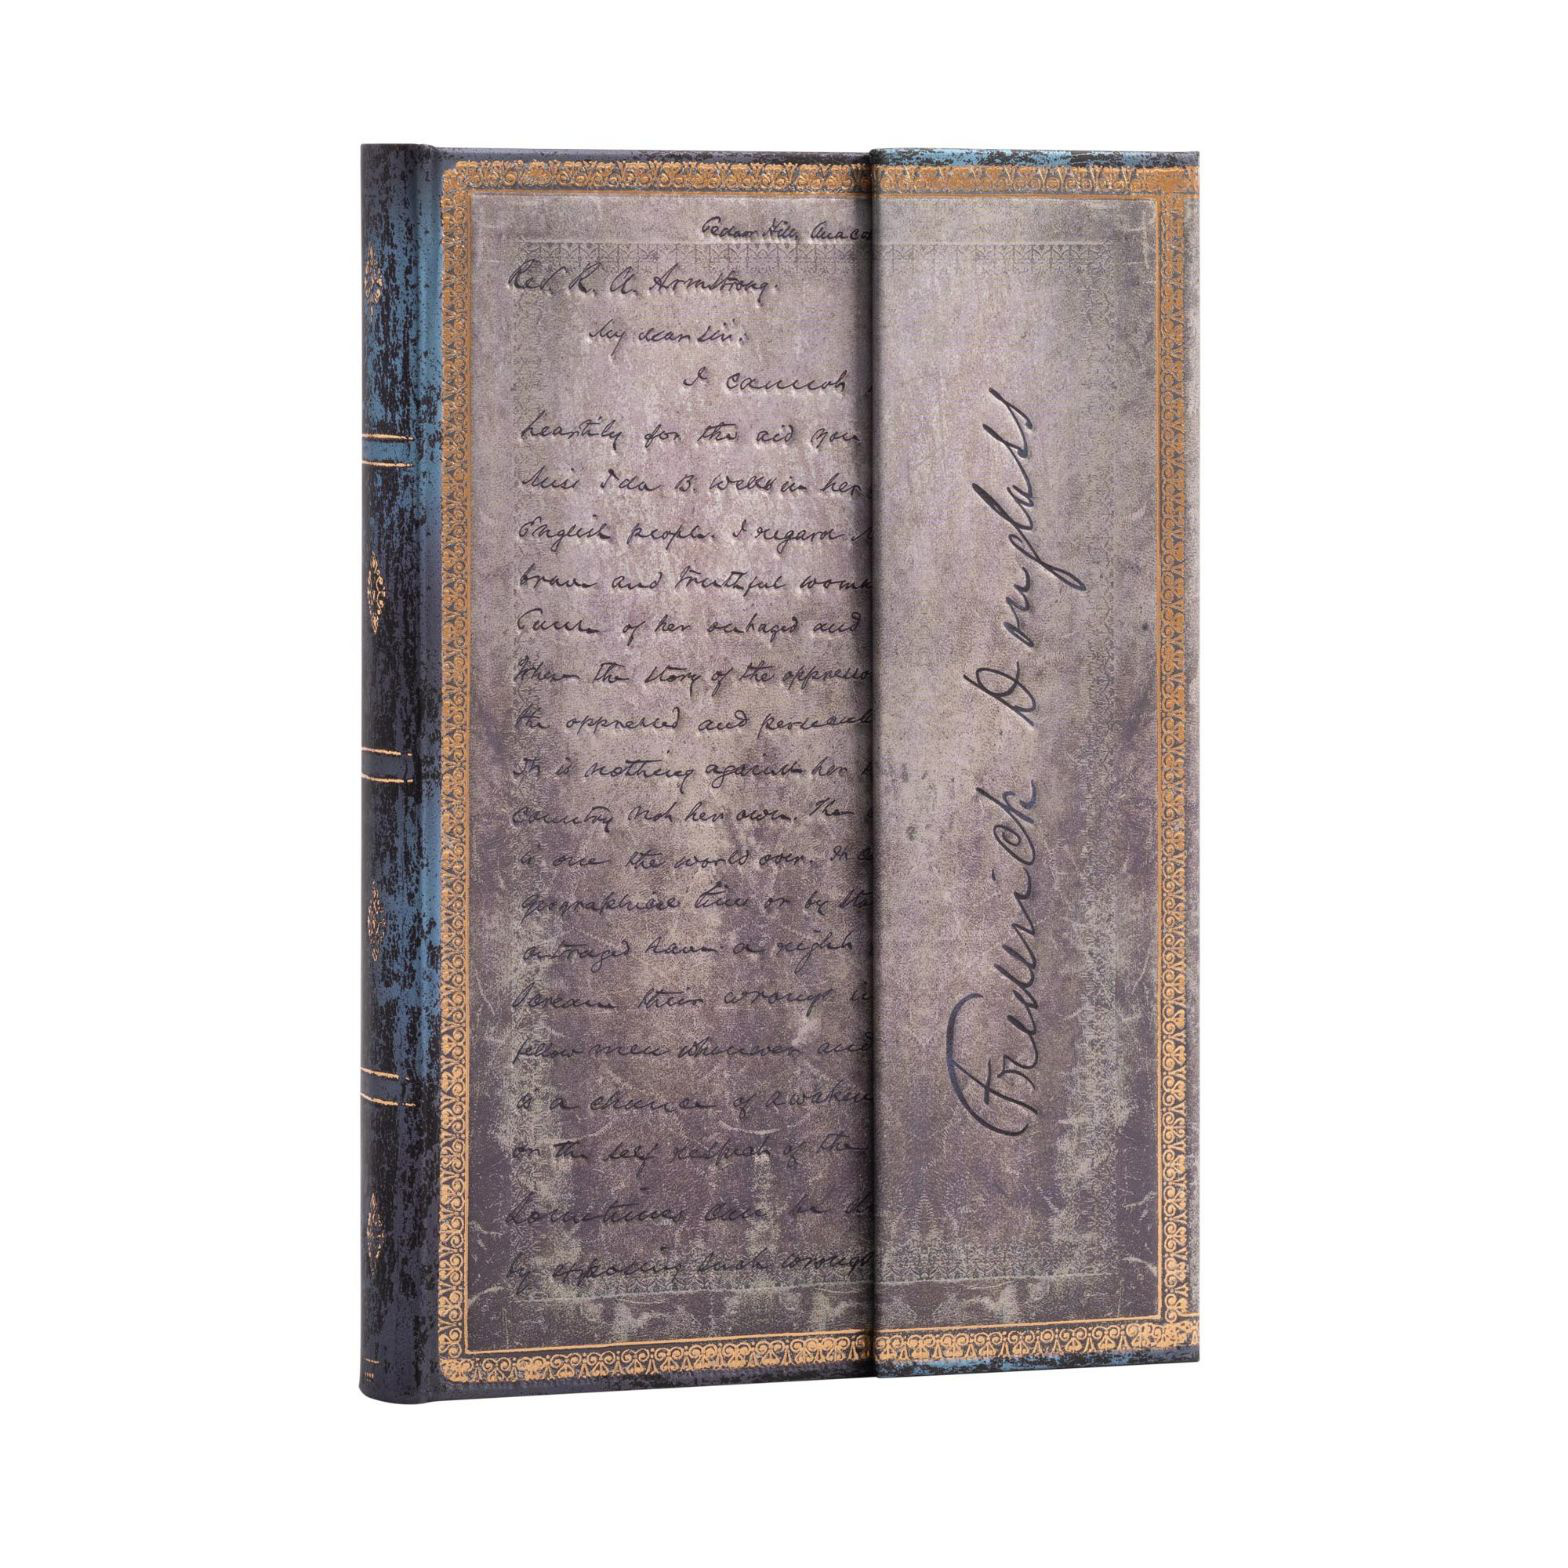 Cedar Hill, Anaco
Rev. R. A. Armstrong.
My dear Sir:
I cannot
heartily for the aid you
Miss Ida B. Wells in her
English people. I regard
brave and truthful woma
Cause of her outraged and
When the story of the oppresso
the oppressed and persecut
It is nothing against her
country not her own. The
is one the world over. It c
geographical lines or by
outraged have a right
scream their wrongs
fellow men whenever and
is a chance of awaken
on the self respect of the
Sometimes can be
by exposing such wrongs
Frederick Douglass